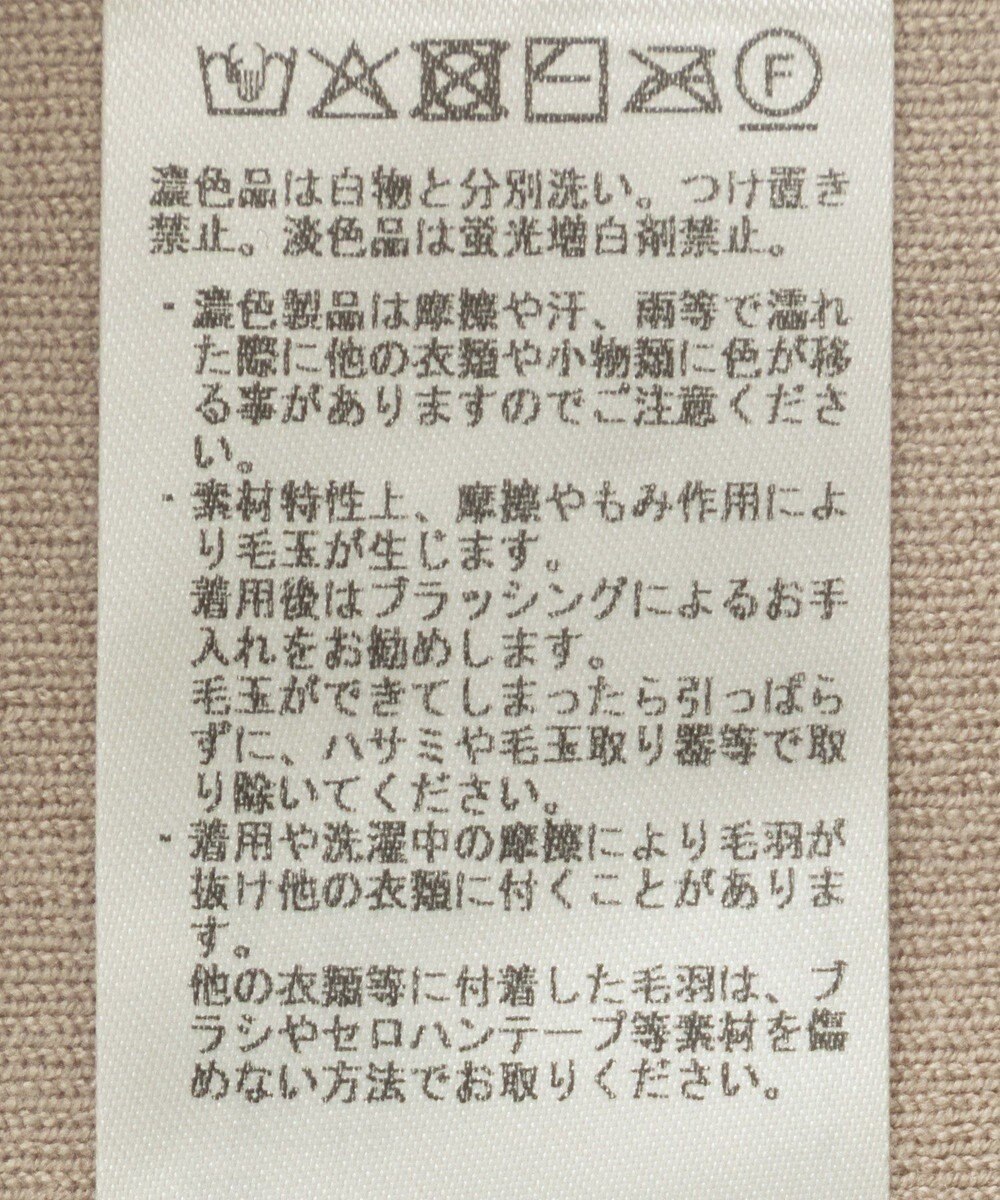 F
濃色品は白物と分別洗い。つけ置き
禁止。淡色品は蛍光増白剤禁止。
・濃色製品は摩擦や汗、雨等で濡れ
た際に他の衣類や小物類に色が移
る事がありますのでご注意くださ
い。
・素材特性上、摩擦やもみ作用によ
り毛玉が生じます。
着用後はブラッシングによるお手
入れをお勧めします。
毛玉ができてしまったら引っぱら
ずに、ハサミや毛玉取り器等で取
り除いてください。
・着用や洗濯中の摩擦により毛羽が
抜け他の衣類に付くことがありま
す。
他の衣類等に付着した毛羽は、ブ
ラシやセロハンテープ等素材を傷
めない方法でお取りください。